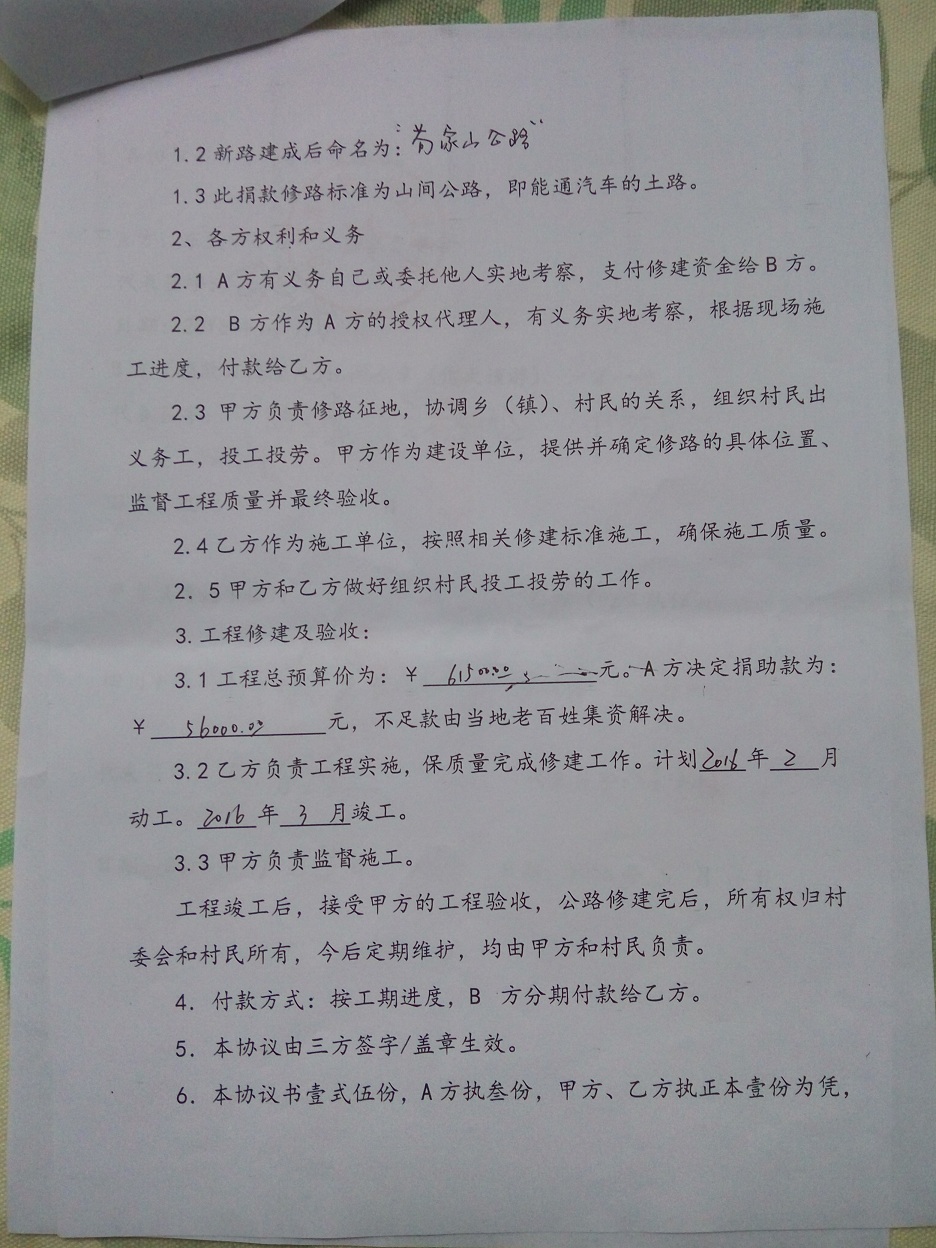 1.2新路建成后命名为:“苟家山公路”
1.3此捐款修路标准为山间公路，即能通汽车的土路。
2、各方权利和义务
2.1 A方有义务自己或委托他人实地考察，支付修建资金给B方。
2.2 B方作为A方的授权代理人，有义务实地考察，根据现场施
工进度，付款给乙方。
2.3 甲方负责修路征地，协调乡（镇）、村民的关系，组织村民出
义务工，投工投劳。甲方作为建设单位，提供并确定修路的具体位置、
监督工程质量并最终验收。
2.4乙方作为施工单位，按照相关修建标准施工，确保施工质量。
2.5甲方和乙方做好组织村民投工投劳的工作。
3.工程修建及验收:
3.1工程总预算价为:￥ 61500.00 元。A方决定捐助款为:
￥ 56000.00 元，不足款由当地老百姓集资解决。
3.2乙方负责工程实施，保质量完成修建工作。计划2016年 2 月
动工。2016 年 3 月竣工。
3.3甲方负责监督施工。
工程竣工后，接受甲方的工程验收，公路修建完后，所有权归村
委会和村民所有，今后定期维护，均由甲方和村民负责。
4. 付款方式:按工期进度，B 方分期付款给乙方。
5. 本协议由三方签字/盖章生效。
6. 本协议书壹式伍份，A方执叁份，甲方、乙方执正本壹份为凭，